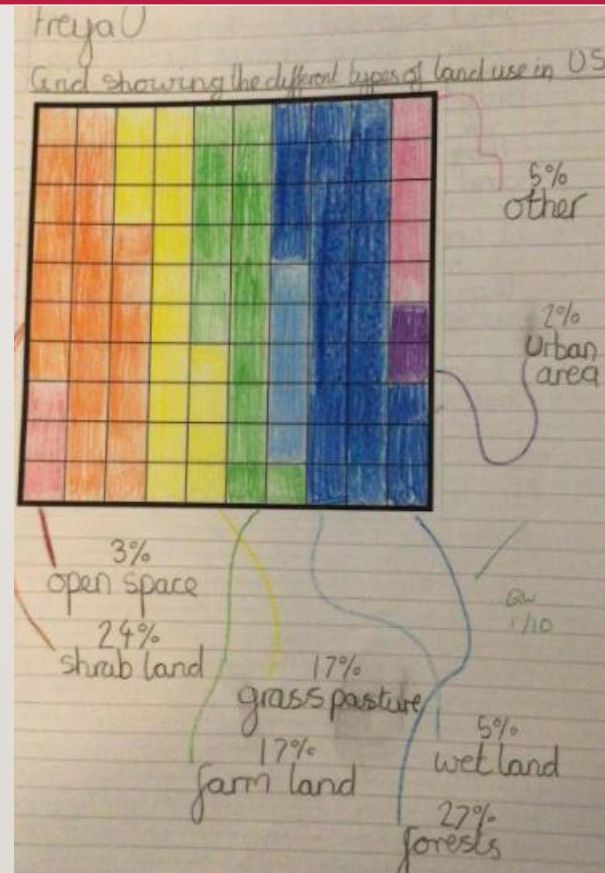 Freya U
Grid showing the different types of land use in US
5%
other
2%
Urban
area
3%
open space
24%
shrub land
17%
grass pasture
17%
farm land
5%
wet land
27%
forests
1/10